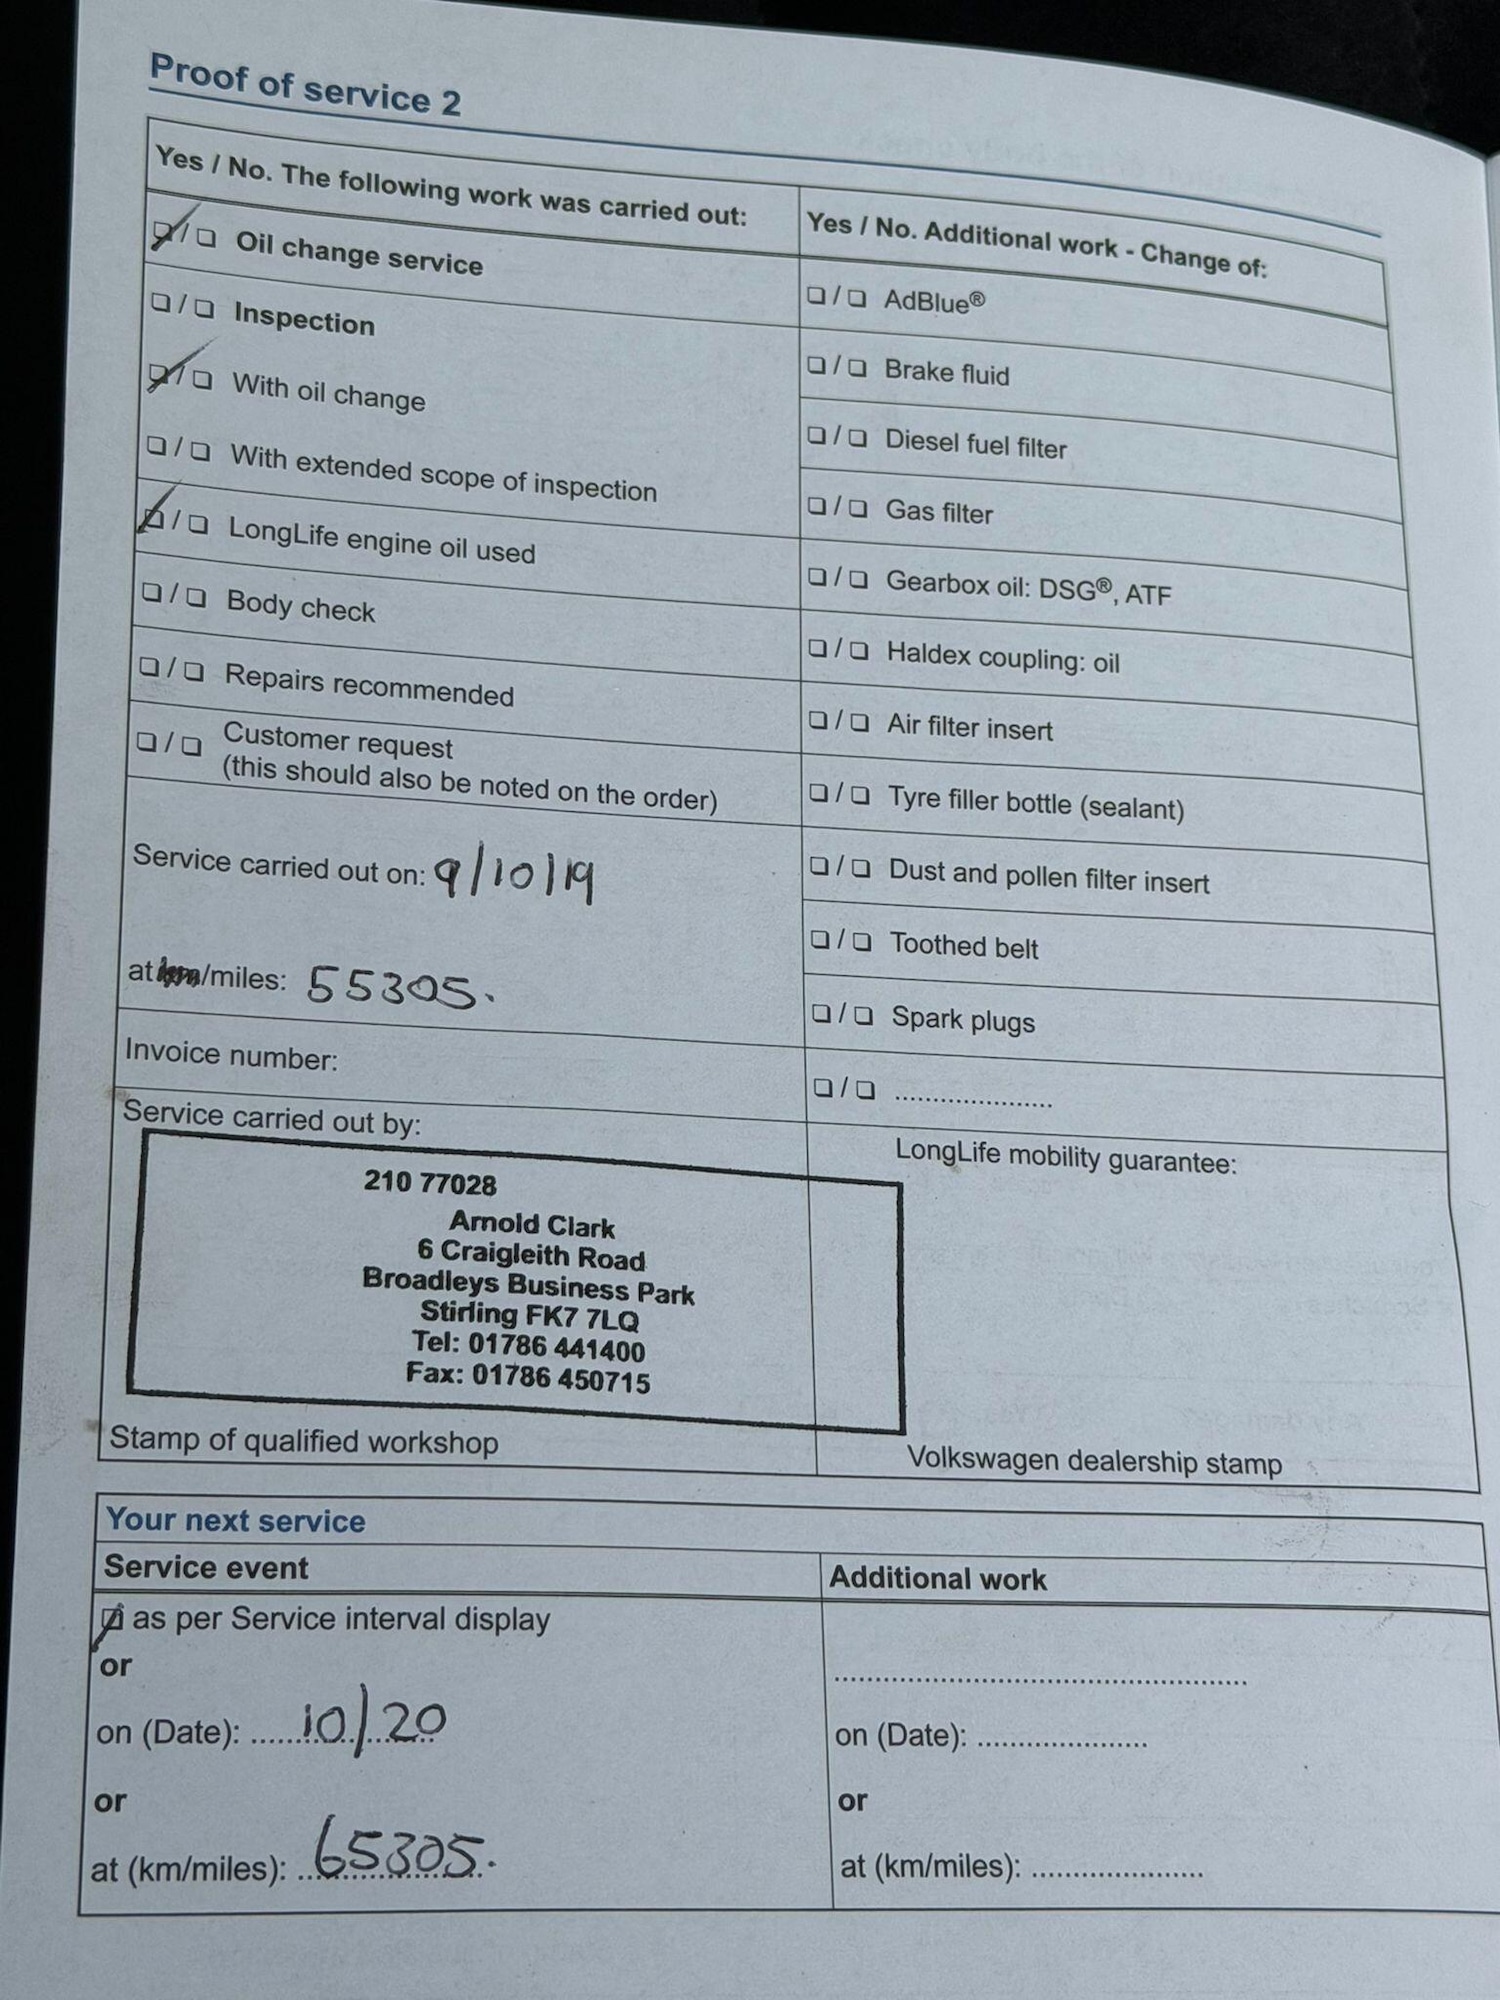 Proof of service 2
Yes / No. The following work was carried out:
❏/❏ Oil change service
❏/❏ Inspection
❏/❏ With oil change
❏/❏ With extended scope of inspection
❏/❏ LongLife engine oil used
❏/❏ Body check
❏/❏ Repairs recommended
❏/❏ Customer request
(this should also be noted on the order)
Service carried out on: 9/10/19
at km/miles: 55305.
Invoice number:
Service carried out by:
210 77028
Arnold Clark
6 Craigleith Road
Broadleys Business Park
Stirling FK7 7LQ
Tel: 01786 441400
Fax: 01786 450715
Stamp of qualified workshop
Yes / No. Additional work - Change of:
❏/❏ AdBlue®
❏/❏ Brake fluid
❏/❏ Diesel fuel filter
❏/❏ Gas filter
❏/❏ Gearbox oil: DSG®, ATF
❏/❏ Haldex coupling: oil
❏/❏ Air filter insert
❏/❏ Tyre filler bottle (sealant)
❏/❏ Dust and pollen filter insert
❏/❏ Toothed belt
❏/❏ Spark plugs
❏/❏ .....................
LongLife mobility guarantee:
Volkswagen dealership stamp
Your next service
Service event
❏ as per Service interval display
or
on (Date): 10/20
or
at (km/miles): 65305.
Additional work
.....................................................
on (Date): ......................
or
at (km/miles): ......................